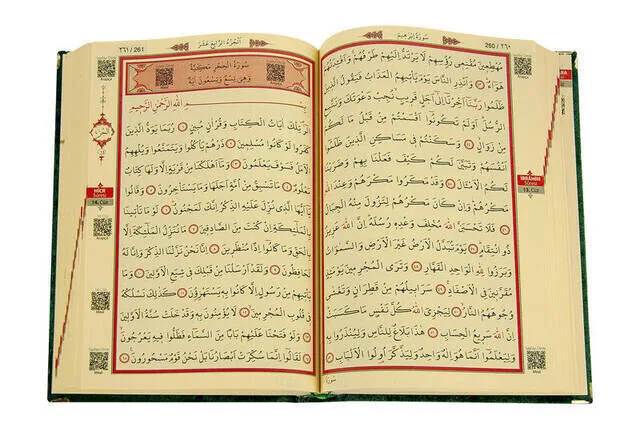 سُورَةُ اِبْرٰهِيمَ
260 / ٢٦٠
مُهْطِعِينَ مُقْنِعِى رُؤُسِهِمْ لَا يَرْتَدُّ اِلَيْهِمْ طَرْفُهُمْ وَاَفْئِدَتُهُمْ
هَوَاءٌ ﴿٤٣﴾ وَاَنْذِرِ النَّاسَ يَوْمَ يَأْتِيهِمُ الْعَذَابُ فَيَقُولُ الَّذِينَ
ظَلَمُوا رَبَّنَا اَخِّرْنَا اِلٰى اَجَلٍ قَرِيبٍ نُجِبْ دَعْوَتَكَ وَنَتَّبِعِ
الرُّسُلَ اَوَلَمْ تَكُونُوا اَقْسَمْتُمْ مِنْ قَبْلُ مَا لَكُمْ
مِنْ زَوَالٍ ﴿٤٤﴾ وَسَكَنْتُمْ فِى مَسَاكِنِ الَّذِينَ ظَلَمُوا
اَنْفُسَهُمْ وَتَبَيَّنَ لَكُمْ كَيْفَ فَعَلْنَا بِهِمْ وَضَرَبْنَا
لَكُمُ الْاَمْثَالَ ﴿٤٥﴾ وَقَدْ مَكَرُوا مَكْرَهُمْ وَعِنْدَ اللّٰهِ
مَكْرُهُمْ وَاِنْ كَانَ مَكْرُهُمْ لِتَزُولَ مِنْهُ الْجِبَالُ
﴿٤٦﴾ فَلَا تَحْسَبَنَّ اللّٰهَ مُخْلِفَ وَعْدِهِ رُسُلَهُ اِنَّ اللّٰهَ عَزِيزٌ
ذُو انْتِقَامٍ ﴿٤٧﴾ يَوْمَ تُبَدَّلُ الْاَرْضُ غَيْرَ الْاَرْضِ وَالسَّمٰوَاتُ
وَبَرَزُوا لِلّٰهِ الْوَاحِدِ الْقَهَّارِ ﴿٤٨﴾ وَتَرَى الْمُجْرِمِينَ يَوْمَئِذٍ
مُقَرَّنِينَ فِى الْاَصْفَادِ ﴿٤٩﴾ سَرَابِيلُهُمْ مِنْ قَطِرَانٍ وَتَغْشٰى
وُجُوهَهُمُ النَّارُ ﴿٥٠﴾ لِيَجْزِىَ اللّٰهُ كُلَّ نَفْسٍ مَا كَسَبَتْ
اِنَّ اللّٰهَ سَرِيعُ الْحِسَابِ ﴿٥١﴾ هٰذَا بَلَاغٌ لِلنَّاسِ وَلِيُنْذَرُوا بِهِ
وَلِيَعْلَمُوا اَنَّمَا هُوَ اِلٰهٌ وَاحِدٌ وَلِيَذَّكَّرَ اُولُوا الْاَلْبَابِ ﴿٥٢﴾
İBRAHİM
Sûresi
13. Cüz
اَلْجُزْءُ الرَّابِعُ عَشَرَ
261 / ٢٦١
سُورَةُ الْحِجْرِ مَكِّيَّةٌ
وَهِىَ تِسْعٌ وَتِسْعُونَ اٰيَةً
بِسْمِ اللّٰهِ الرَّحْمٰنِ الرَّحِيمِ
الٓرٰ تِلْكَ اٰيَاتُ الْكِتَابِ وَقُرْاٰنٍ مُبِينٍ ﴿١﴾ رُبَمَا يَوَدُّ الَّذِينَ
كَفَرُوا لَوْ كَانُوا مُسْلِمِينَ ﴿٢﴾ ذَرْهُمْ يَأْكُلُوا وَيَتَمَتَّعُوا وَيُلْهِهِمُ
الْاَمَلُ فَسَوْفَ يَعْلَمُونَ ﴿٣﴾ وَمَا اَهْلَكْنَا مِنْ قَرْيَةٍ اِلَّا وَلَهَا كِتَابٌ
مَعْلُومٌ ﴿٤﴾ مَا تَسْبِقُ مِنْ اُمَّةٍ اَجَلَهَا وَمَا يَسْتَأْخِرُونَ ﴿٥﴾ وَقَالُوا
يَا اَيُّهَا الَّذِى نُزِّلَ عَلَيْهِ الذِّكْرُ اِنَّكَ لَمَجْنُونٌ ﴿٦﴾ لَوْ مَا تَأْتِينَا
بِالْمَلٰئِكَةِ اِنْ كُنْتَ مِنَ الصَّادِقِينَ ﴿٧﴾ مَا نُنَزِّلُ الْمَلٰئِكَةَ اِلَّا
بِالْحَقِّ وَمَا كَانُوا اِذًا مُنْظَرِينَ ﴿٨﴾ اِنَّا نَحْنُ نَزَّلْنَا الذِّكْرَ وَاِنَّا لَهُ
لَحَافِظُونَ ﴿٩﴾ وَلَقَدْ اَرْسَلْنَا مِنْ قَبْلِكَ فِى شِيَعِ الْاَوَّلِينَ ﴿١٠﴾ وَمَا
يَأْتِيهِمْ مِنْ رَسُولٍ اِلَّا كَانُوا بِهِ يَسْتَهْزِؤُنَ ﴿١١﴾ كَذٰلِكَ نَسْلُكُهُ
فِى قُلُوبِ الْمُجْرِمِينَ ﴿١٢﴾ لَا يُؤْمِنُونَ بِهِ وَقَدْ خَلَتْ سُنَّةُ الْاَوَّلِينَ
﴿١٣﴾ وَلَوْ فَتَحْنَا عَلَيْهِمْ بَابًا مِنَ السَّمَاءِ فَظَلُّوا فِيهِ يَعْرُجُونَ
﴿١٤﴾ لَقَالُوا اِنَّمَا سُكِّرَتْ اَبْصَارُنَا بَلْ نَحْنُ قَوْمٌ مَسْحُورُونَ ﴿١٥﴾
HİCR
Sûresi
14. Cüz